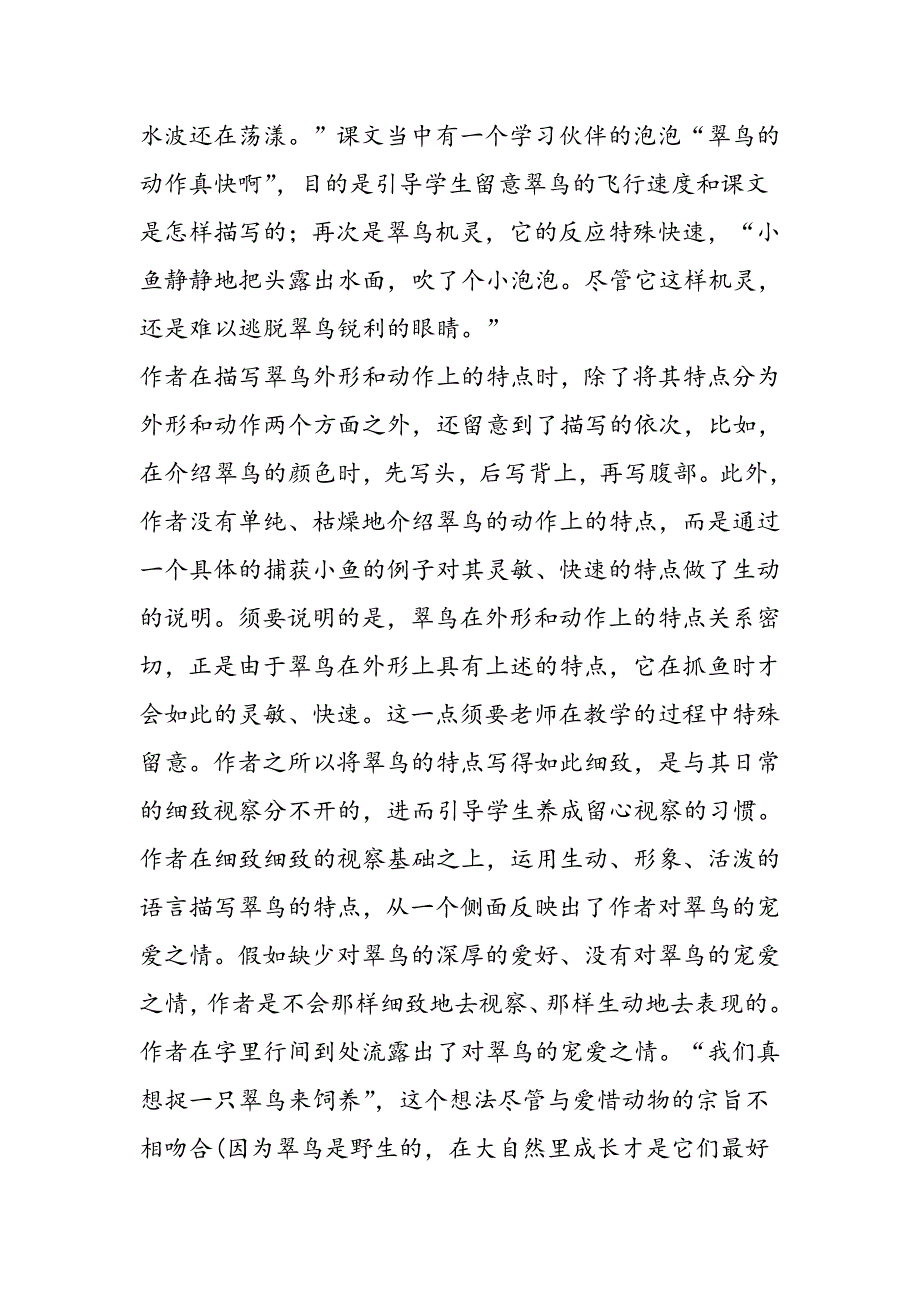 水波还在荡漾。”课文当中有一个学习伙伴的泡泡“翠鸟的
动作真快啊”，目的是引导学生留意翠鸟的飞行速度和课文
是怎样描写的；再次是翠鸟机灵，它的反应特殊快速，“小
鱼静静地把头露出水面，吹了个小泡泡。尽管它这样机灵，
还是难以逃脱翠鸟锐利的眼睛。”
作者在描写翠鸟外形和动作上的特点时，除了将其特点分为
外形和动作两个方面之外，还留意到了描写的依次，比如，
在介绍翠鸟的颜色时，先写头，后写背上，再写腹部。此外，
作者没有单纯、枯燥地介绍翠鸟的动作上的特点，而是通过
一个具体的捕获小鱼的例子对其灵敏、快速的特点做了生动
的说明。须要说明的是，翠鸟在外形和动作上的特点关系密
切，正是由于翠鸟在外形上具有上述的特点，它在抓鱼时才
会如此的灵敏、快速。这一点须要老师在教学的过程中特殊
留意。作者之所以将翠鸟的特点写得如此细致，是与其日常
的细致视察分不开的，进而引导学生养成留心视察的习惯。
作者在细致细致的视察基础之上，运用生动、形象、活泼的
语言描写翠鸟的特点，从一个侧面反映出了作者对翠鸟的宠
爱之情。假如缺少对翠鸟的深厚的爱好、没有对翠鸟的宠爱
之情，作者是不会那样细致地去视察、那样生动地去表现的。
作者在字里行间到处流露出了对翠鸟的宠爱之情。“我们真
想捉一只翠鸟来饲养”，这个想法尽管与爱惜动物的宗旨不
相吻合(因为翠鸟是野生的，在大自然里成长才是它们最好